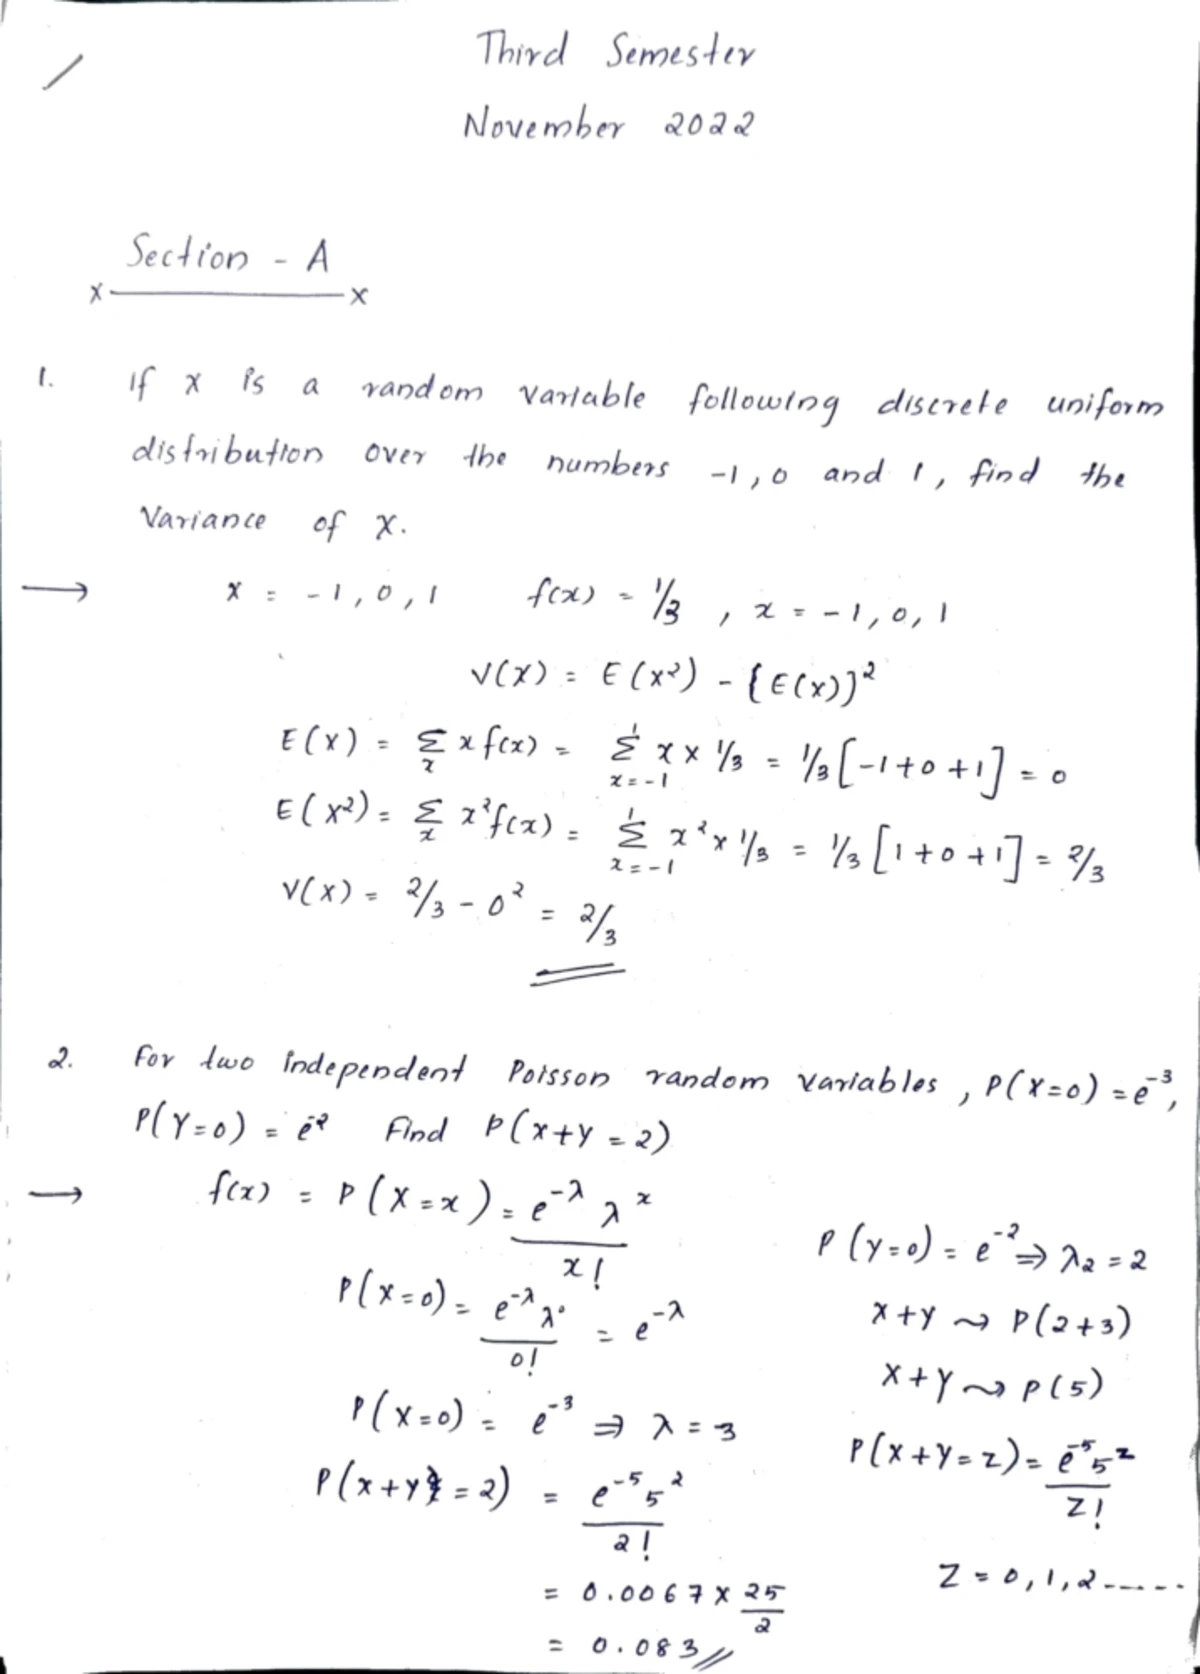 Third Semester
November 2022
Section - A
x x
1. If x is a random variable following discrete uniform
distribution over the numbers -1, 0 and 1, find the
Variance of X.
→ X = -1, 0, 1 f(x) = 1/3 , x = -1, 0, 1
V(X) = E(X²) - {E(X)}²
E(X) = Σₓ x f(x) = Σ_{x=-1}^{1} x × 1/3 = 1/3 [-1+0+1] = 0
E(X²) = Σₓ x² f(x) = Σ_{x=-1}^{1} x² × 1/3 = 1/3 [1+0+1] = 2/3
V(X) = 2/3 - 0² = 2/3
2. For two independent Poisson random variables, P(X=0) = e⁻³,
P(Y=0) = e⁻² Find P(X+Y = 2)
→ f(x) = P(X=x) = e^{-λ} λ^x / x!
P(X=0) = e^{-λ} λ⁰ / 0! = e^{-λ}
P(X=0) = e⁻³ ⇒ λ = 3
P(X+Y = 2) = e⁻⁵ 5² / 2!
= 0.0067 × 25/2
= 0.083
P(Y=0) = e⁻² ⇒ λ₂ = 2
X+Y ⇝ P(2+3)
X+Y ⇝ P(5)
P(X+Y = Z) = e⁻⁵ 5^Z / Z!
Z = 0, 1, 2 ------